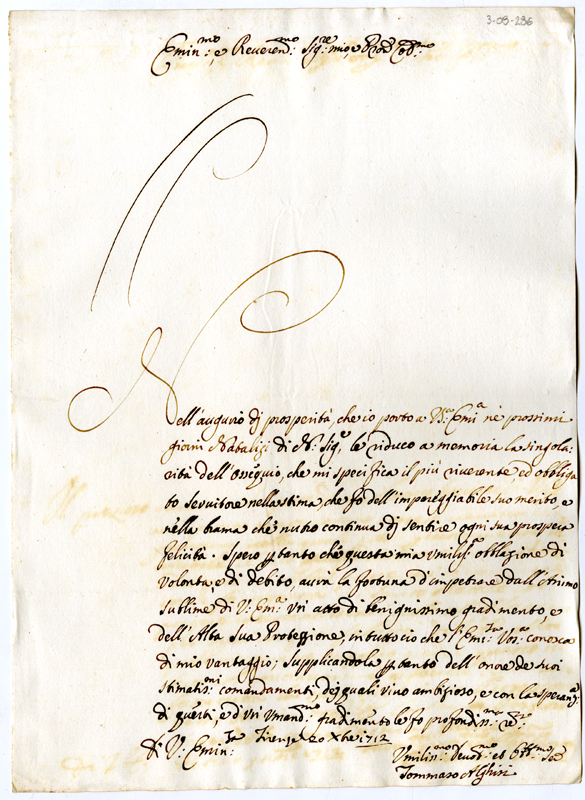 3-09-286
Emin:mo e Reverend:mo Sig:re mio, e Pron Col:mo
Nell'augurio dj prosperità, che io porto a V:a Emi:a ne prossimi
giorni Natalizj di N: Sig:e, le riduco a memoria la singola:
rità dell'ossequio, che mi specifica il più riverente, ed obbliga
to servitore nella stima, che fò dell'impareggiabile suo merito, e
nella brama che nutro continua dj sentire ogni sua prospera
felicità. Spero p tanto che questa mia Vmiliss:a oblazione di
volontà, e di debito, aurà la fortuna d'impetrare dall'Animo
sublime di V: Em:a Vn atto di benignissimo gradimento, e
dell'Alta Sua Protezzione, in tuttociò che l'Emi:za Vos:a conosca
di mio vantaggio; Supplicandola p tanto dell'onore de suoi
stimatis:mi comandamenti, dej quali vivo ambizioso, e con la speran:a
di questi, e d'un Vman:mo gradimento le fo profondis:ma
Di V: Emin:za Firenze 20 Xbre 1712
Vmilis:mo Deuot:mo et Obb:mo Se:
Tommaso Alghisi